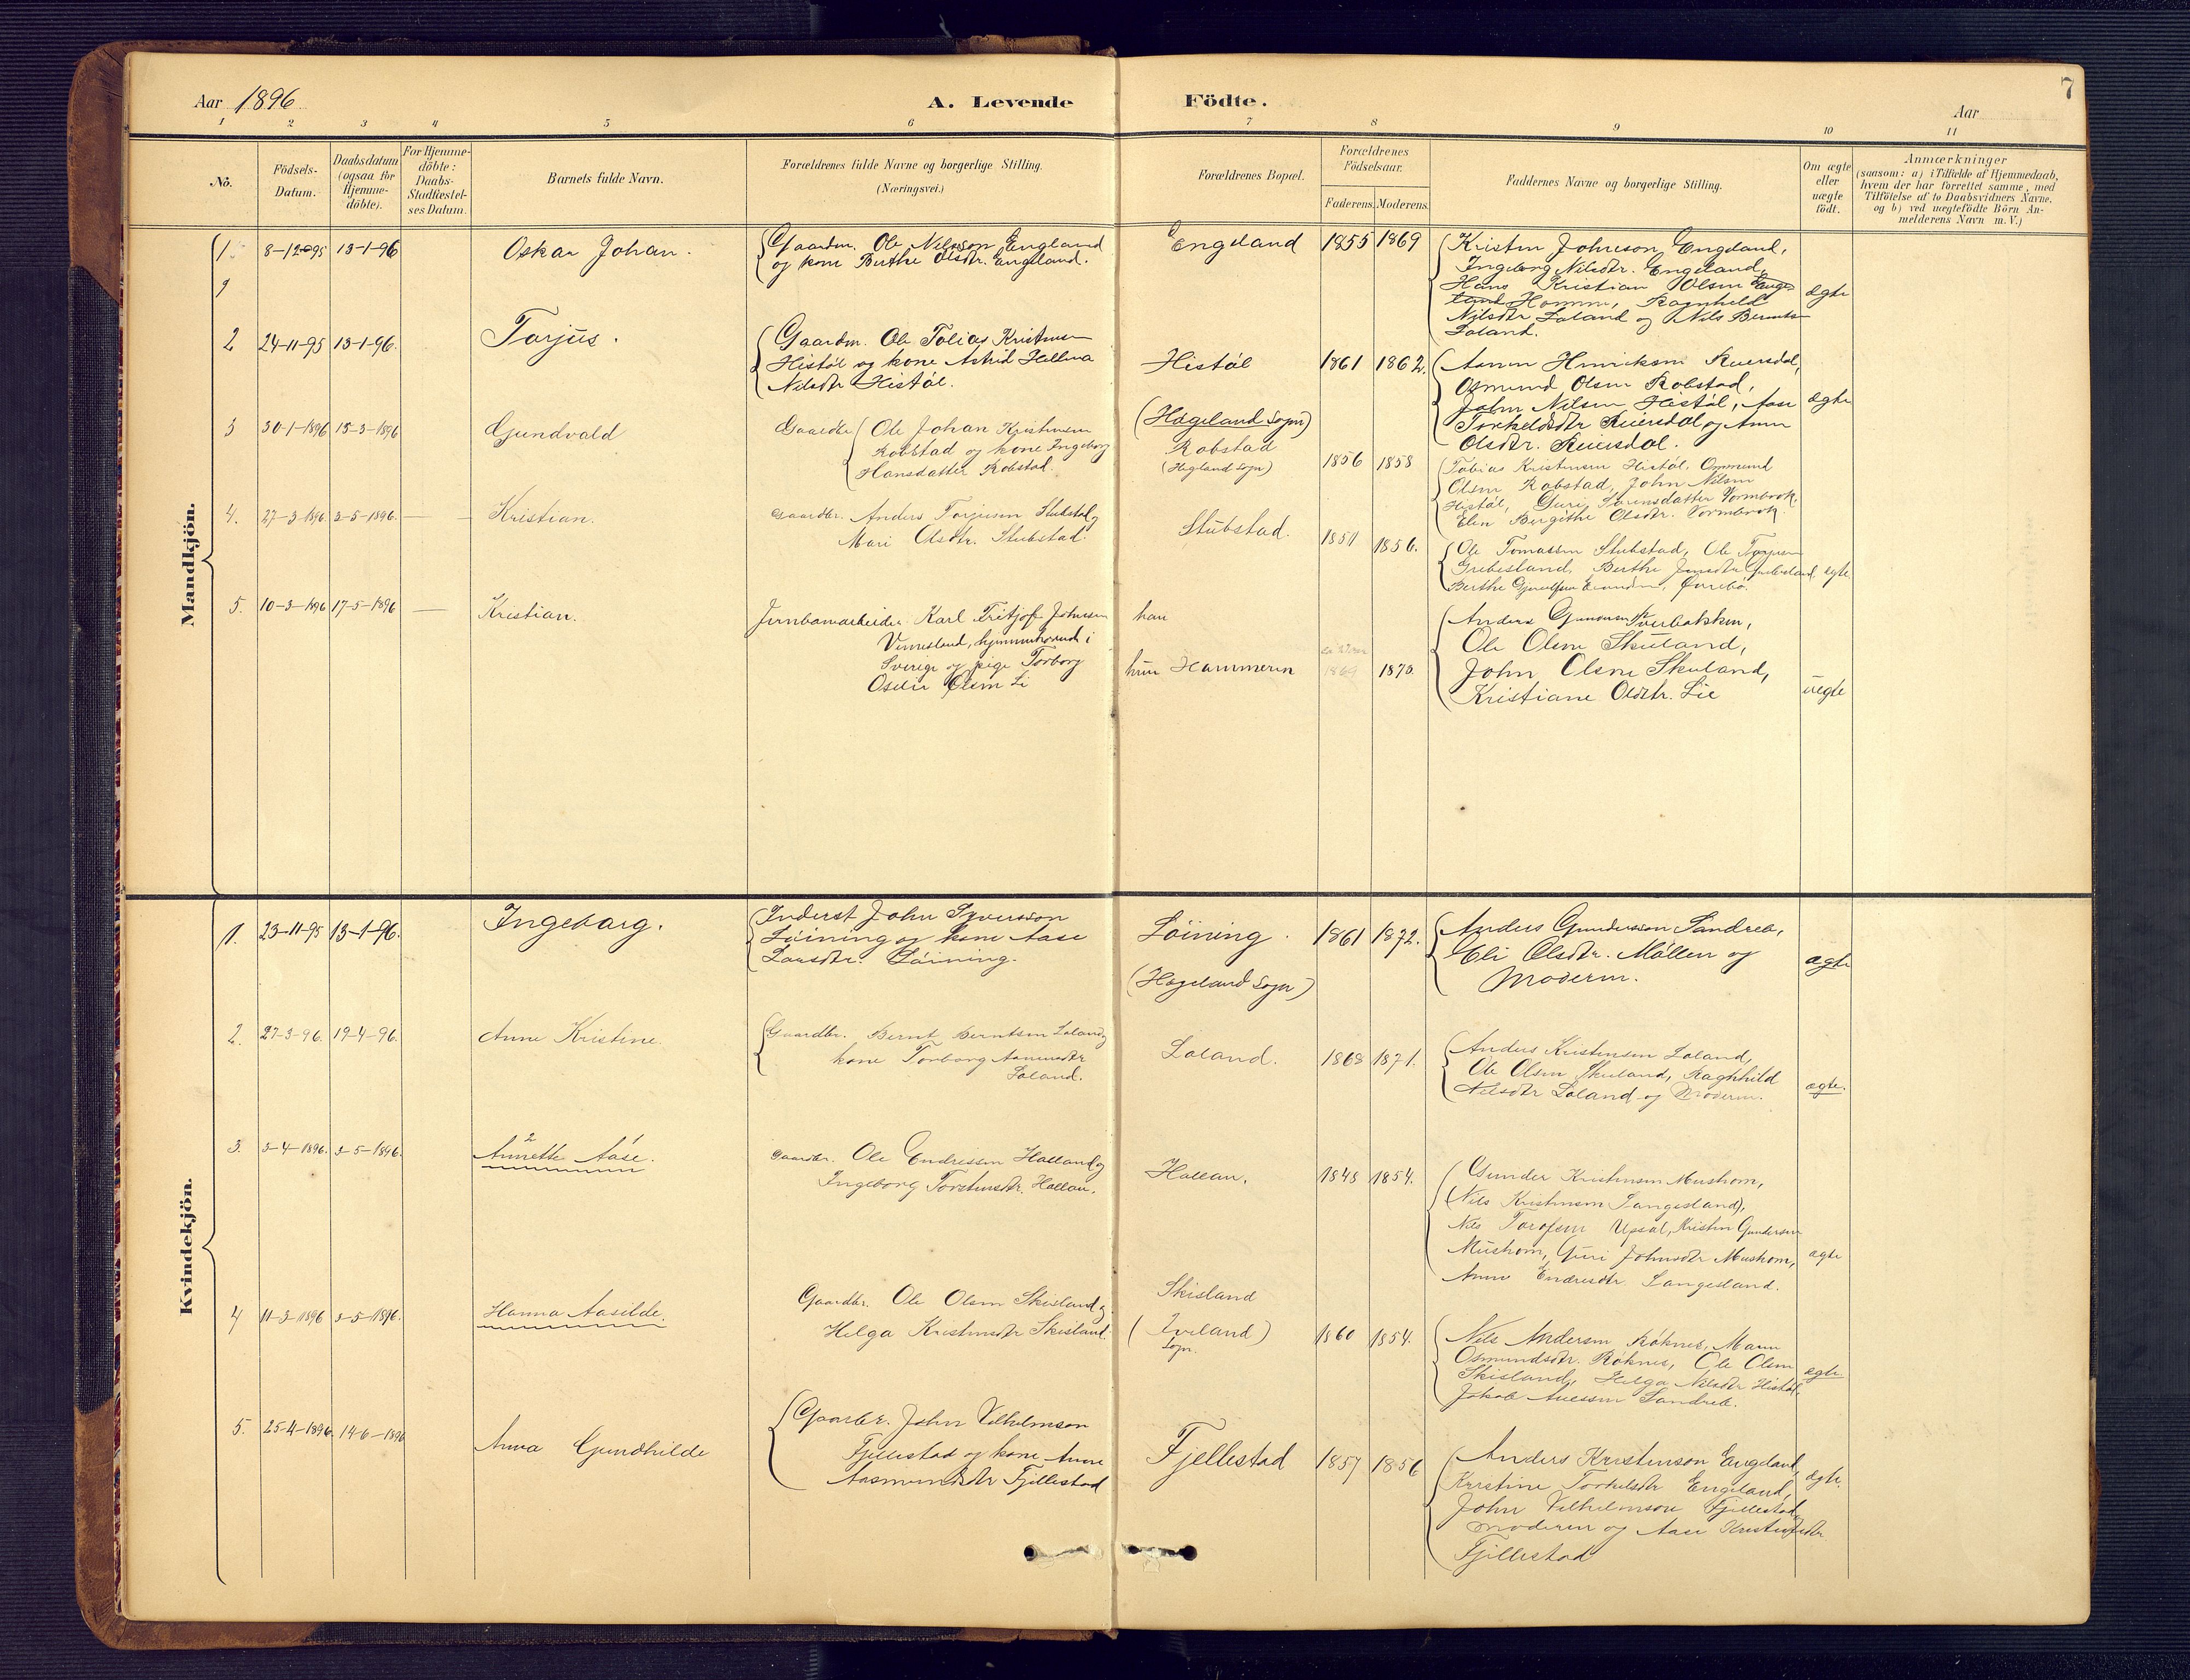 7
Aar 1896
A. Levende Födte.
Aar
1 2 3 4 5 6 7 8 9 10 11
No.
Födsels-
Datum.
Daabsdatum
(ogsaa for
Hjemme-
döbte).
For Hjemme-
döbte:
Daabs-
Stadfæstel-
ses Datum.
Barnets fulde Navn.
Forældrenes fulde Navne og borgerlige Stilling.
(Næringsvei.)
Forældrenes Bopæl.
Forældrenes
Födselsaar.
Faderens. Moderens.
Faddernes Navne og borgerlige Stilling.
Om ægte
eller
uægte
födt.
Anmærkninger
(saasom: a) i Tilfælde af Hjemmedaab,
hvem der har forrettet samme, med
Tilföielse af to Daabsvidners Navne.
og b) ved uægtefödte Börn An-
melderens Navn m. V.)
Mandkjön.
1. 8-12-95 13-1-96 Oskar Johan.
Gaardm. Ole Nilsson Engeland
og kone Berthe Olsdtr. Engeland.
Engeland 1855 1869
Kristen Johnson Engeland,
Ingeborg Nilsdtr. Engeland,
Hans Kristian Olsen
Homme, Ragnhild
Nilsdtr Loland og Nils Berntsen
Loland.
ægte
2 24-11-95 13-1-96. Torjus.
Gaardm. Ole Tobias Kristensen
Histöl og kone Astrid Hellena
Nilsdtr Histöl.
Histöl 1861 1862.
(Hægeland Sogn)
Hinriksen Reiersdal,
Osmund Olsen Robstad,
John Nilsen Histöl, Aase
Torkeldsdtr Reiersdal og Anne
Olsdtr. Reiersdal.
ægte
3 30-1-1896 15-3-1896 Gundvald
Gaardbr. Ole Johan Kristensen
Robstad og kone Ingeborg
Hansdatter Robstad.
Robstad
(Hægland Sogn) 1856 1858
Tobias Kristensen Histöl, Ommund
Olsen Robstad, John Nilsen
Histöl, Guri Sörensdatter Vormbrok.
Elen Bergithe Olsdtr. Vormbrok.
4. 27-3-1896. 3-5-1896. Kristian.
Gaardbr. Anders Torjusen Stubstad og
Mari Olsdtr. Stubstad.
Stubstad. 1851 1856.
Ole Tomassen Stubstad, Ole Torjusen
Grebesland, Berthe Jensdtr Grebesland,
Berthe
ægte.
5. 10-3-1896 17-5-1896 Kristian.
Jernbanearbeider Karl Fritjof Johnsen
Vennesland, hjemmehörende i
Sverige og pige Torborg
Olsen Li
han
hun Hammeren 1869 1870.
Anders Gunnersen Tverbakken,
Ole Olsen Skuland,
John Olsen Skuland,
Kristiane Olsdtr. Lie
uegte
Kvindekjön.
1. 23-11-95 13-1-96. Ingeborg.
Inderst John Syversson
Löining og kone Aase
Larsdtr. Löining.
Löining. 1861 1872.
(Hægeland Sogn)
Anders Gundersson Sandreb,
Eli Olsdtr. Möllen og
Moderen.
ægte
2. 27-3-96. 19-4-96. Anne Kristine.
Gaardbr. Bernt Berntsen Loland og
kone Torborg Aanensdtr
Loland.
Loland. 1868 1871.
Anders Kristensen Loland,
Ole Olsen Skuland, Raghhild
Nilsdtr Loland og Moderen.
ægte.
3. 3-4-1896. 3-5-1896. Annette Aase.
2 1
Gaardbr. Ole Endressen Halland og
Ingeborg Torstensdtr. Hallan.
Hallan. 1848 1854.
Gunder Kristensen Mushom,
(Nils Kristensen Langesland),
Nils Torofsen Upsal, Kristen Gundersen
Mushom, Guri Johnsdtr Mushom,
Anne Endresdtr. Langesland.
ægte
4 11-3-1896 3-5-1896. Hanna Aasilde.
Gaardbr. Ole Olsen Skisland og
Helga Kristensdtr Skisland.
Skisland
(Iveland)
Sogn. 1860 1854.
Nils Andersen Röknes, Maren
Osmundsdtr. Röknes, Ole Olsen
Skisland, Helga Nilsdtr Histöl,
Jakob Sandreb.
ægte.
5. 25-4-1896. 14-6-1896 Anna Gundhilde
Gaardbr. John Vilhelmson
Fjellestad og kone Anne
Aasmundsdtr Fjellestad
Fjellestad 1857 1856
Anders Kristenson Engeland,
Kristine Torkelsdtr Engeland,
John Vilhelmson Fjellestad,
Moderen og Aase
Fjellestad
ægte.